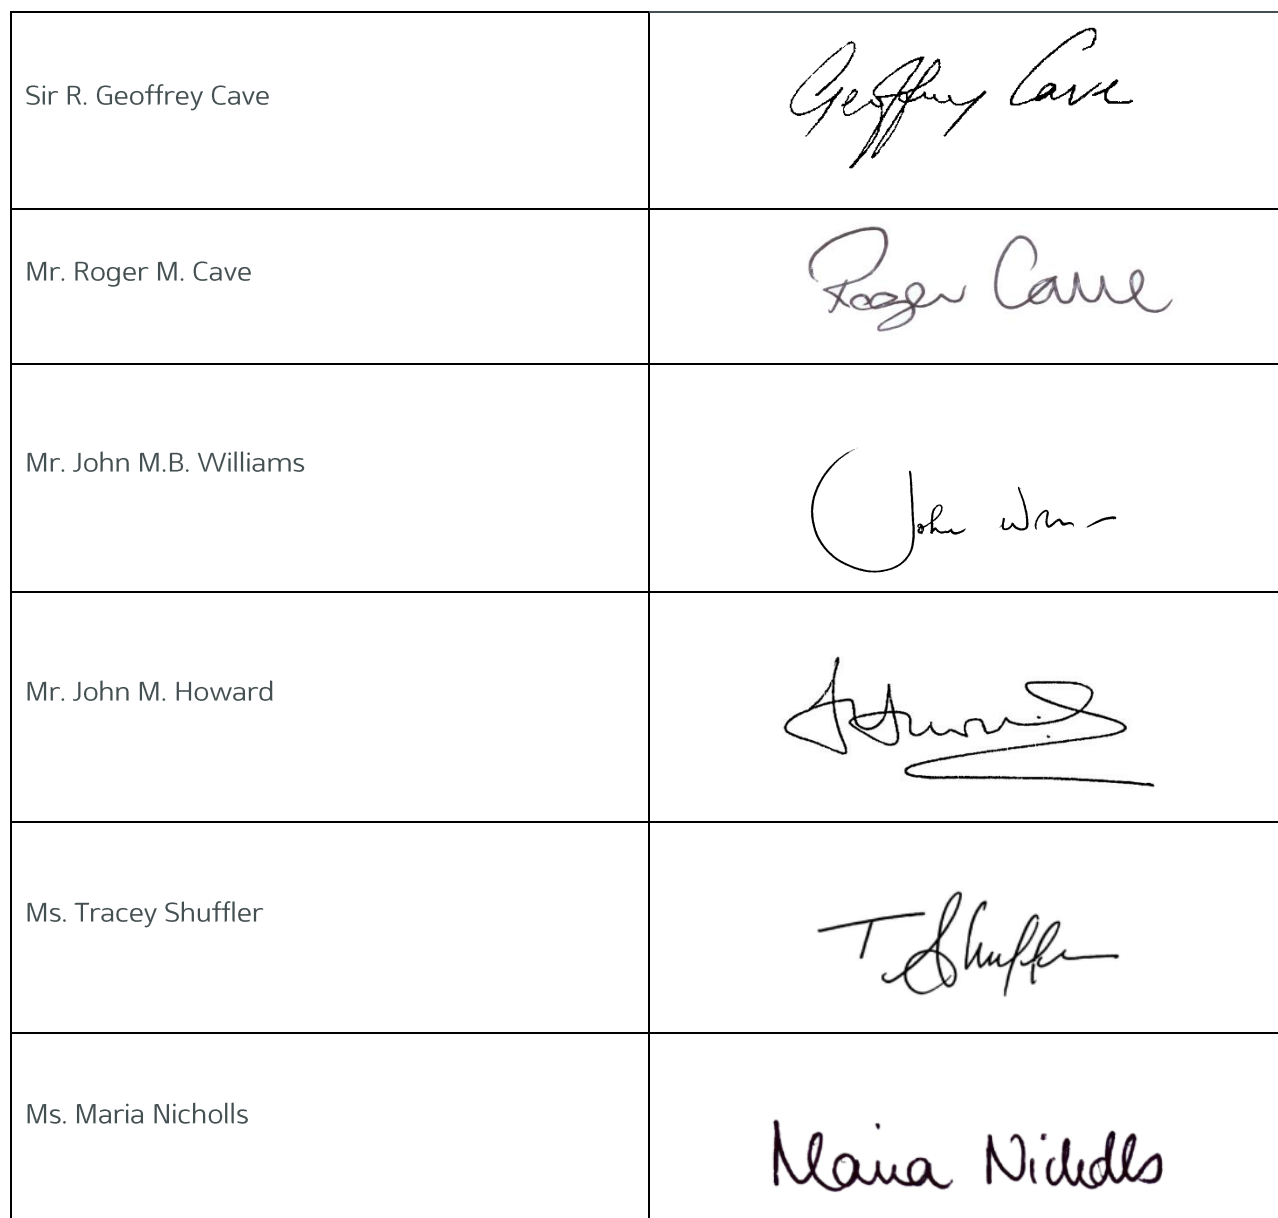 Sir R. Geoffrey Cave
Geoffrey Cave
Mr. Roger M. Cave
Roger Cave
Mr. John M.B. Williams
John
Mr. John M. Howard
Ms. Tracey Shuffler
T. Shuffler
Ms. Maria Nicholls
Maria Nicholls